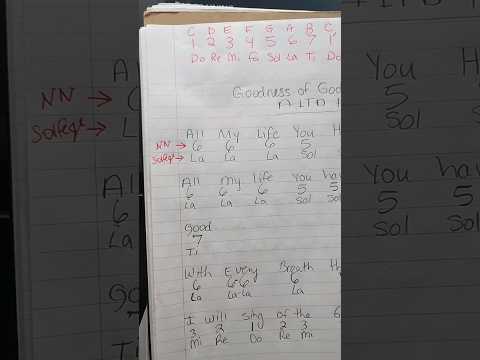 C D E F G A B C
1 2 3 4 5 6 7 1
Do Re Mi Fa Sol La Ti Do
Goodness of God
ALTO
All My Life You H
NN → 6 6 6 5
Solfege → La La La Sol
All my Life You hav
6 6 6 5 5
La La La Sol Sol
Good
7
Ti
With Every Breath
6 6-6 6
La La-La La
I will sing of the
3 2 1 2 3
Mi Re Do Re Mi